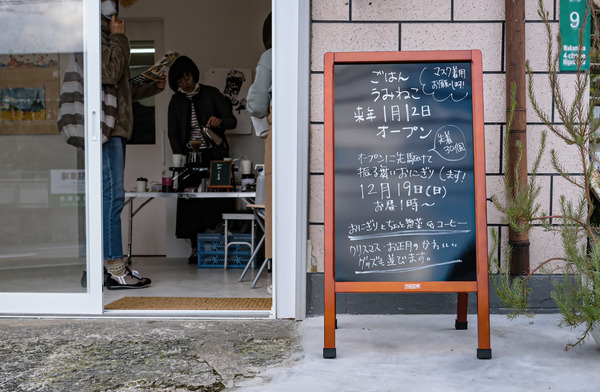 ごはん
うみねこ
マスク着用
お願いします!
来年 1月12日
オープン
先着
30個
オープンに先駆けて
振る舞いおにぎりします!
12月19日(日)
お昼1時〜
おにぎりとちょっと惣菜 & コーヒー
クリスマス お正月のかわいい
グッズも並びます。
9
Wakaba
4-chome